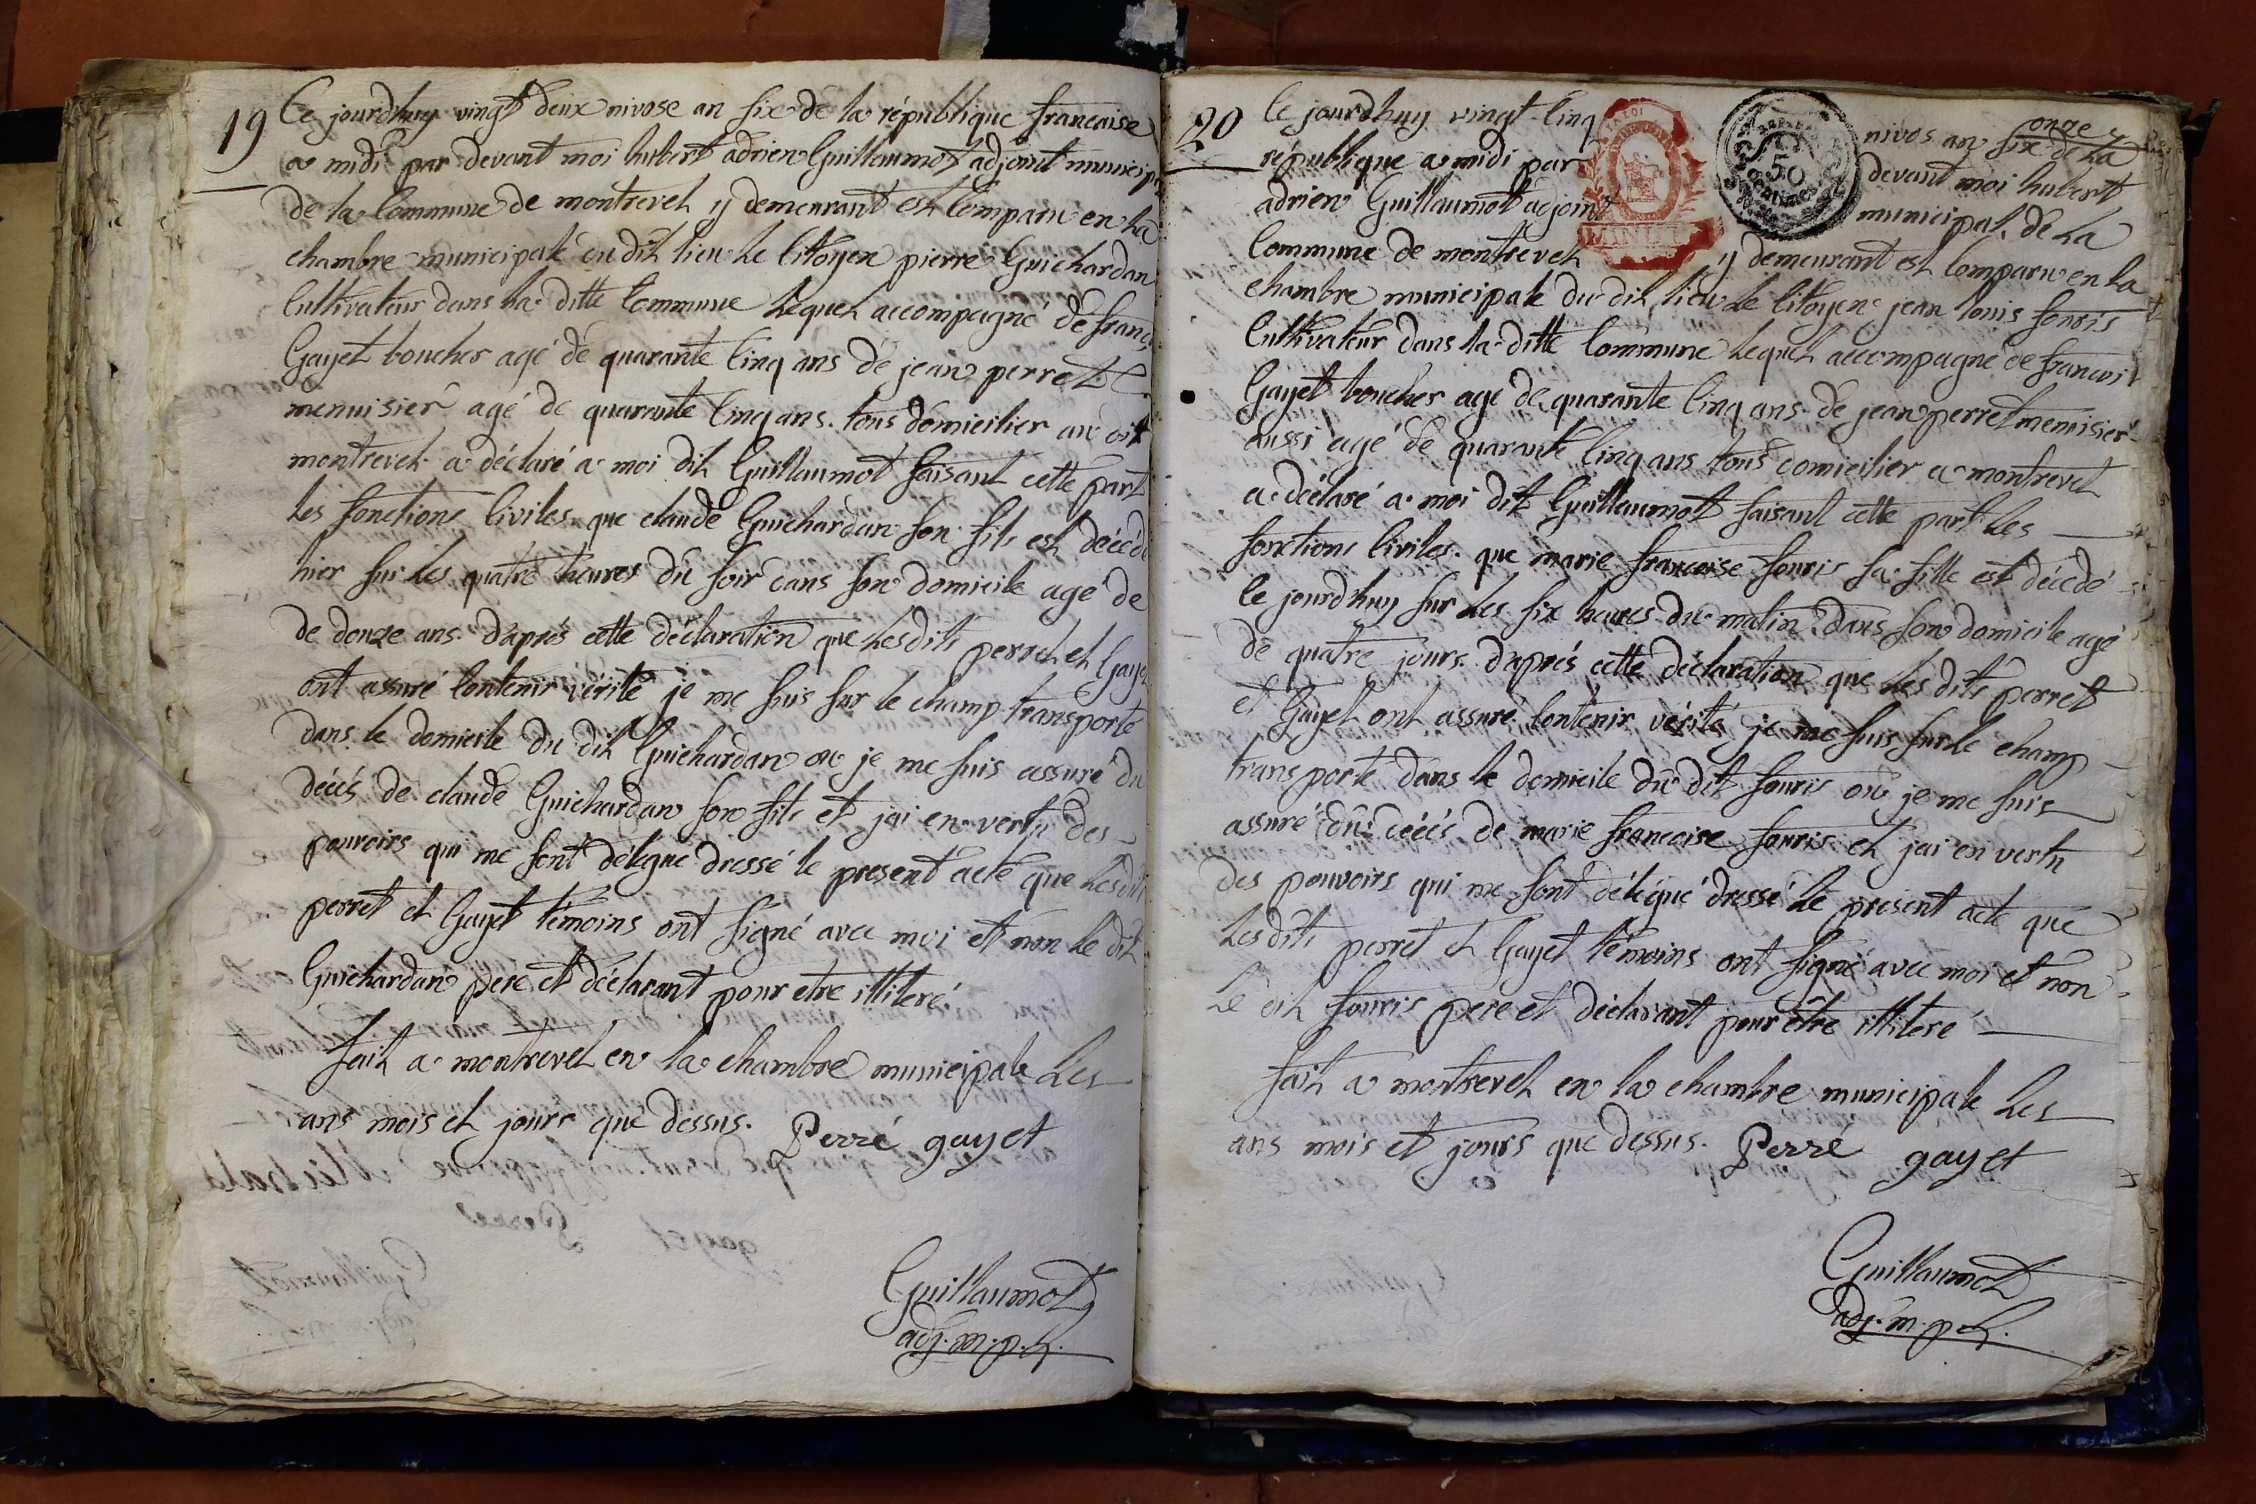 19
Ce jourdhuy vingt deux nivose an six de la république francaise
a midi par devant moi hubert adrien Guillaumot adjoint municip
de la Commune de montrevel y demeurant est Comparu en la
chambre municipale du dit lieu le Citoyen pierre Guichardan
Cultivateur dans la ditte Commune lequel accompagné de franç
Gayet boucher agé de quarante Cinq ans de jean perret
menuisier agé de quarante Cinq ans. tous domicilier au dit
montrevel a déclaré a moi dit Guillaumot faisant cette part
les fonctions Civiles que claude Guichardan son fils est décédé
hier sur les quatre heures du soir dans son domicile agé de
de douze ans. d'aprés cette déclaration que lesdits perret et Gayet
ont assuré Contenir vérité je me suis sur le champ transporté
dans le domicile du dit Guichardan ou je me suis assuré du
décés de claude Guichardan son fils et jai en vertu des
pouvoirs qui me sont délégué dressé le present acte que lesdits
perret et Gayet témoins ont signé avec moi et non le dit
Guichardan pere et déclarant pour etre illiteré.
fait a montrevel en la chambre municipale les
ans mois et jours que dessus. Perré gayet
Guillaumot
adj. m. pl.
20
Ce jourdhuy vingt Cinq nivos an onze
six de la
république a midi par devant moi hubert
adrien Guillaumot adjoint municipal de la
Commune de montrevel y demeurant est Comparu en la
50
centimes
chambre municipale du dit lieu le Citoyen jean louis souris
Cultivateur dans la ditte Commune lequel accompagné de francois
Gayet boucher agé de quarante Cinq ans de jean perret menuisier
aussi agé de quarante Cinq ans tous domicilier a montrevel
a déclaré a moi dit Guillaumot faisant cette part les
fonctions Civiles. que marie francoise souris sa fille est décédé
Ce jourdhuy sur les six heures du matin dans son domicile agé
de quatre jours. d'aprés cette déclaration que lesdits perret
et Gayet ont assuré Contenir vérité je me suis sur le champ
transporté dans le domicile du dit souris ou je me suis
assuré du décés de marie francoise souris et jai en vertu
des pouvoirs qui me sont délégué dressé le present acte que
lesdits perret et Gayet témoins ont signé avec moi et non
le dit souris pere et déclarant pour être illiteré
fait a montrevel en la chambre municipale les
ans mois et jours que dessus. Perré gayet
Guillaumot
adj. m. pl.